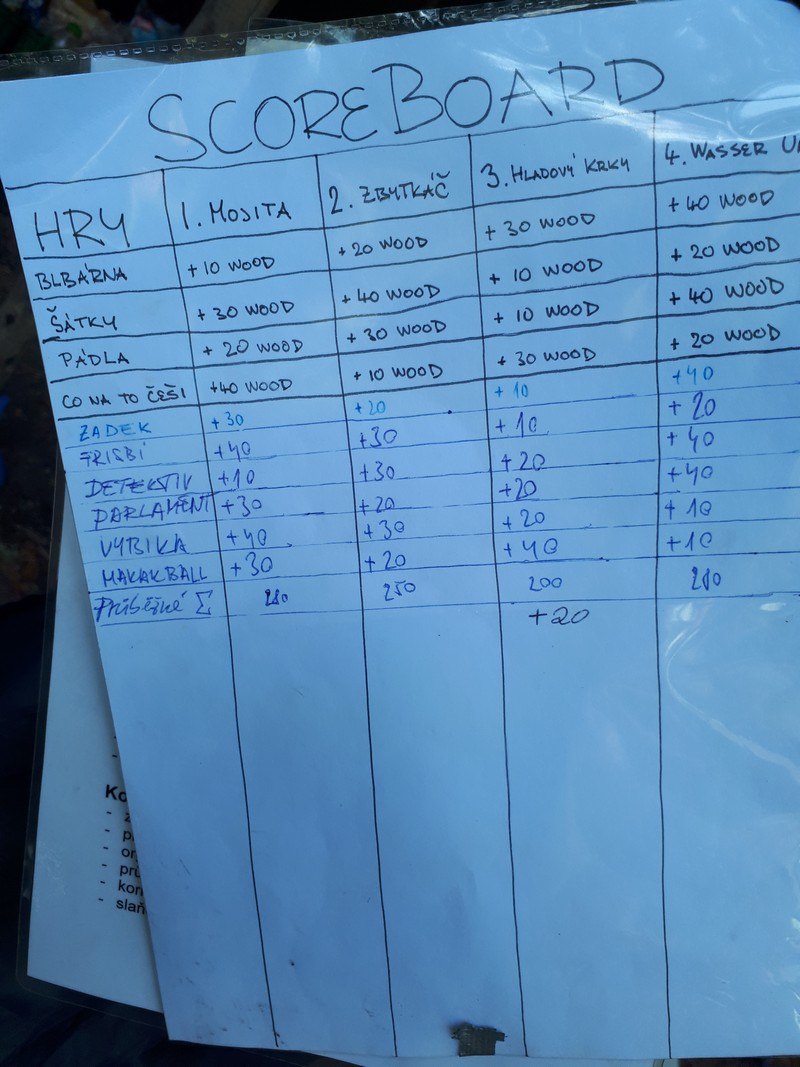 SCOREBOARD
HRY 1. MOJITA 2. ZBYTKÁČ 3. HLADOVÝ KRKY 4. WASSER
BLBÁRNA +10 WOOD +20 WOOD +30 WOOD +40 WOOD
ŠÁTKY +30 WOOD +40 WOOD +10 WOOD +20 WOOD
PÁDLA +20 WOOD +30 WOOD +10 WOOD +40 WOOD
CO NA TO ČEŠI +40 WOOD +10 WOOD +30 WOOD +20 WOOD
ZADEK +30 +20 +10 +40
FRISBÍ +40 +30 +10 +20
DETEKTIV +10 +30 +20 +40
PARLAMENT +30 +20 +20 +40
VYBIKA +40 +30 +20 +10
MAKAKBALL +30 +20 +40 +10
Průběžné Σ 280 250 200 280
+20
Ko
- z
- p
- or
- prů
- kon
- slaň